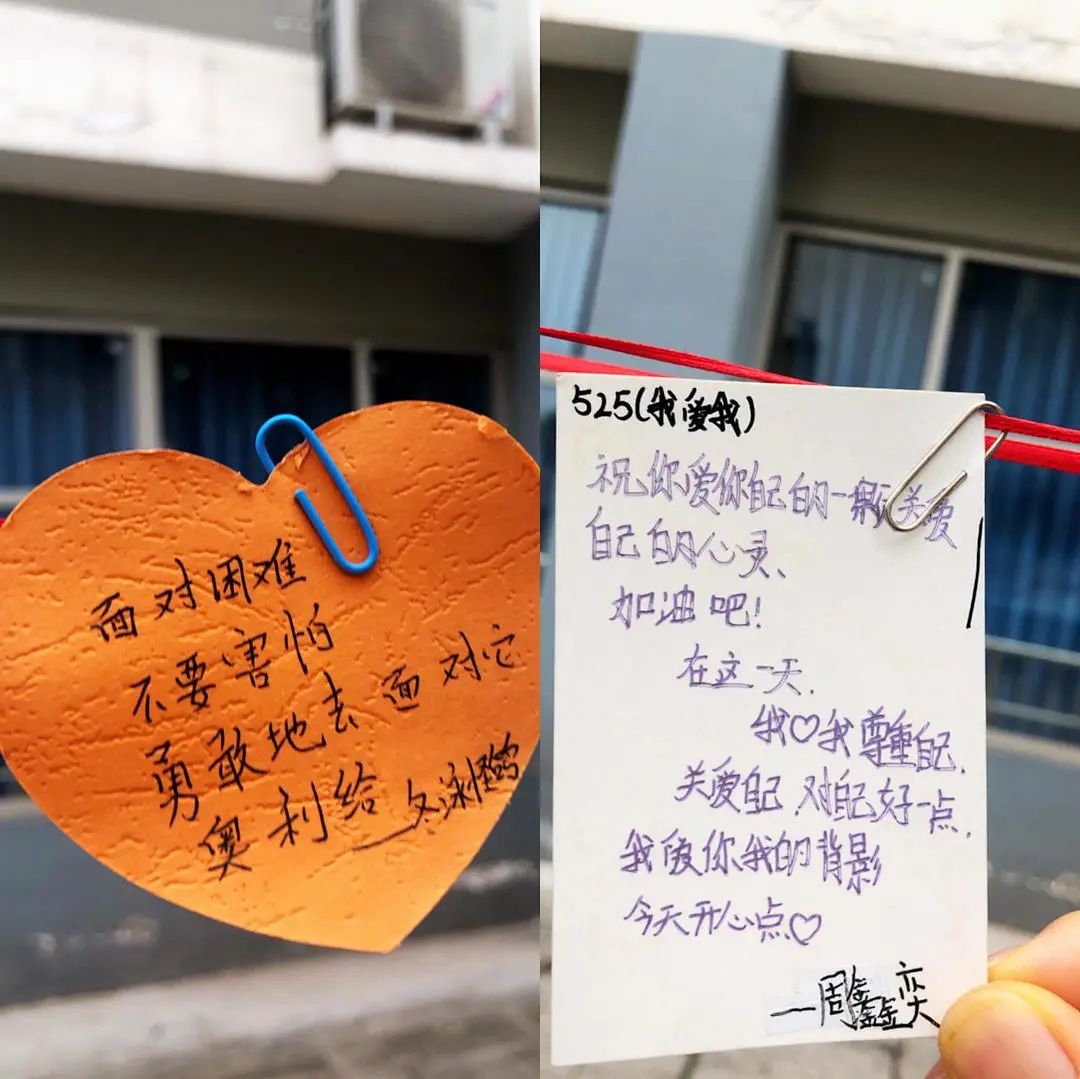 面对困难
不要害怕
勇敢地去面对它
奥利给
525(我爱我)
祝你爱你自己的一切关爱
自己的心灵、
加油吧!
在这一天.
我♡我尊重自己.
关爱自己.对自己好一点.
我爱你我的背影
今天开心点♡
—周鑫奕